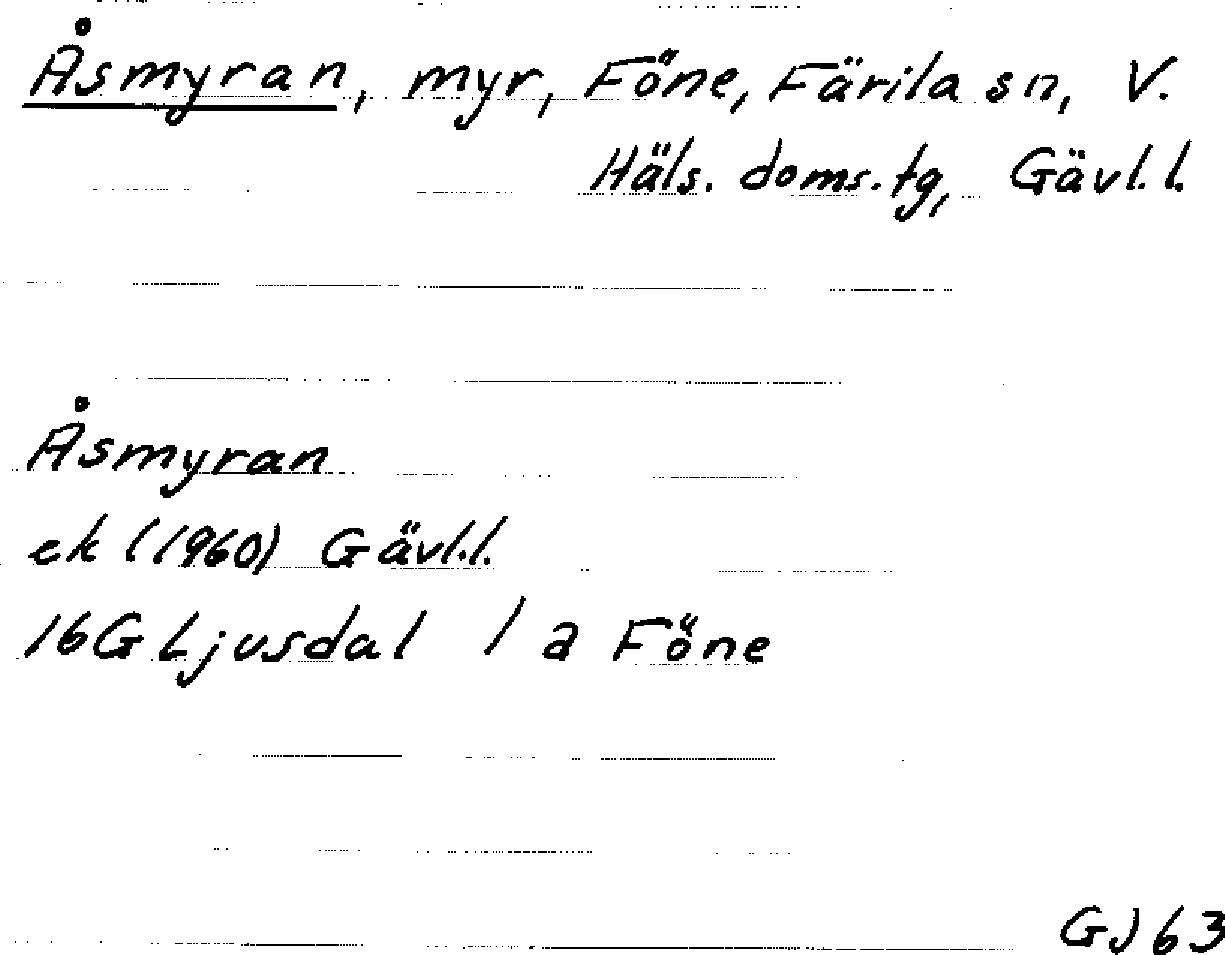 Åsmyran, myr, Föne, Färila sn, V.
Häls. doms.tg, Gävl.l.
Åsmyran
ek (1960) Gävl.l.
16G Ljusdal 1 a Föne
GJ 63